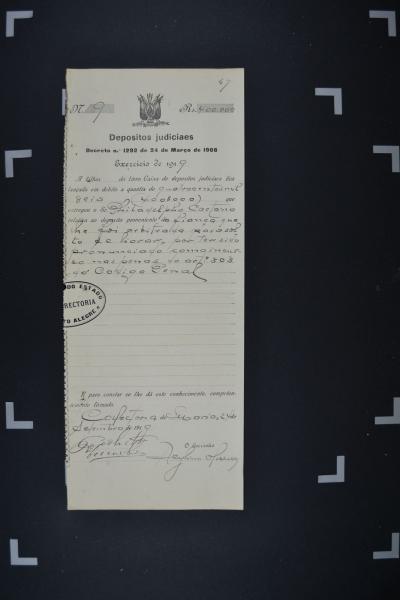 47
N. 9 Rs. 400.000
Depositos judiciaes
Decreto n.º 1292 de 24 de Março de 1908
Exercicio de 1919
A folhas do livro Caixa de depositos judiciaes fica
lançada em debito a quantia de quatrocentos mil
reis (400$000) que
entregou o sr. Philadelpho Caetano
relativa ao deposito proveniente da fiança que
lhe foi arbitrada
por ter sido
pronunciado como incur-
so nas penas do artº 303
do Codigo Penal
DO ESTADO
DIRECTORIA
PORTO ALEGRE
E para constar se lhe dá este conhecimento, competen-
temente firmado.
Collectoria de 24 de
Setembro 1919
O Escrivão